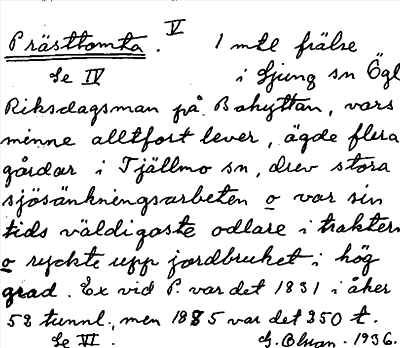 V
Prästtomta. 1 mtl frälse
Se IV i Ljung sn Ögl
Riksdagsman på Bohyttan, vars
minne alltfort lever, ägde flera
gårdar i Tjällmo sn, drev stora
sjösänkningsarbeten o var sin
tids väldigaste odlare i trakten
o ryckte upp jordbruket i hög
grad. Ex vid P. var det 1831 i åker
53 tunnl., men 1885 var det 350 t.
Se VI. 1936.